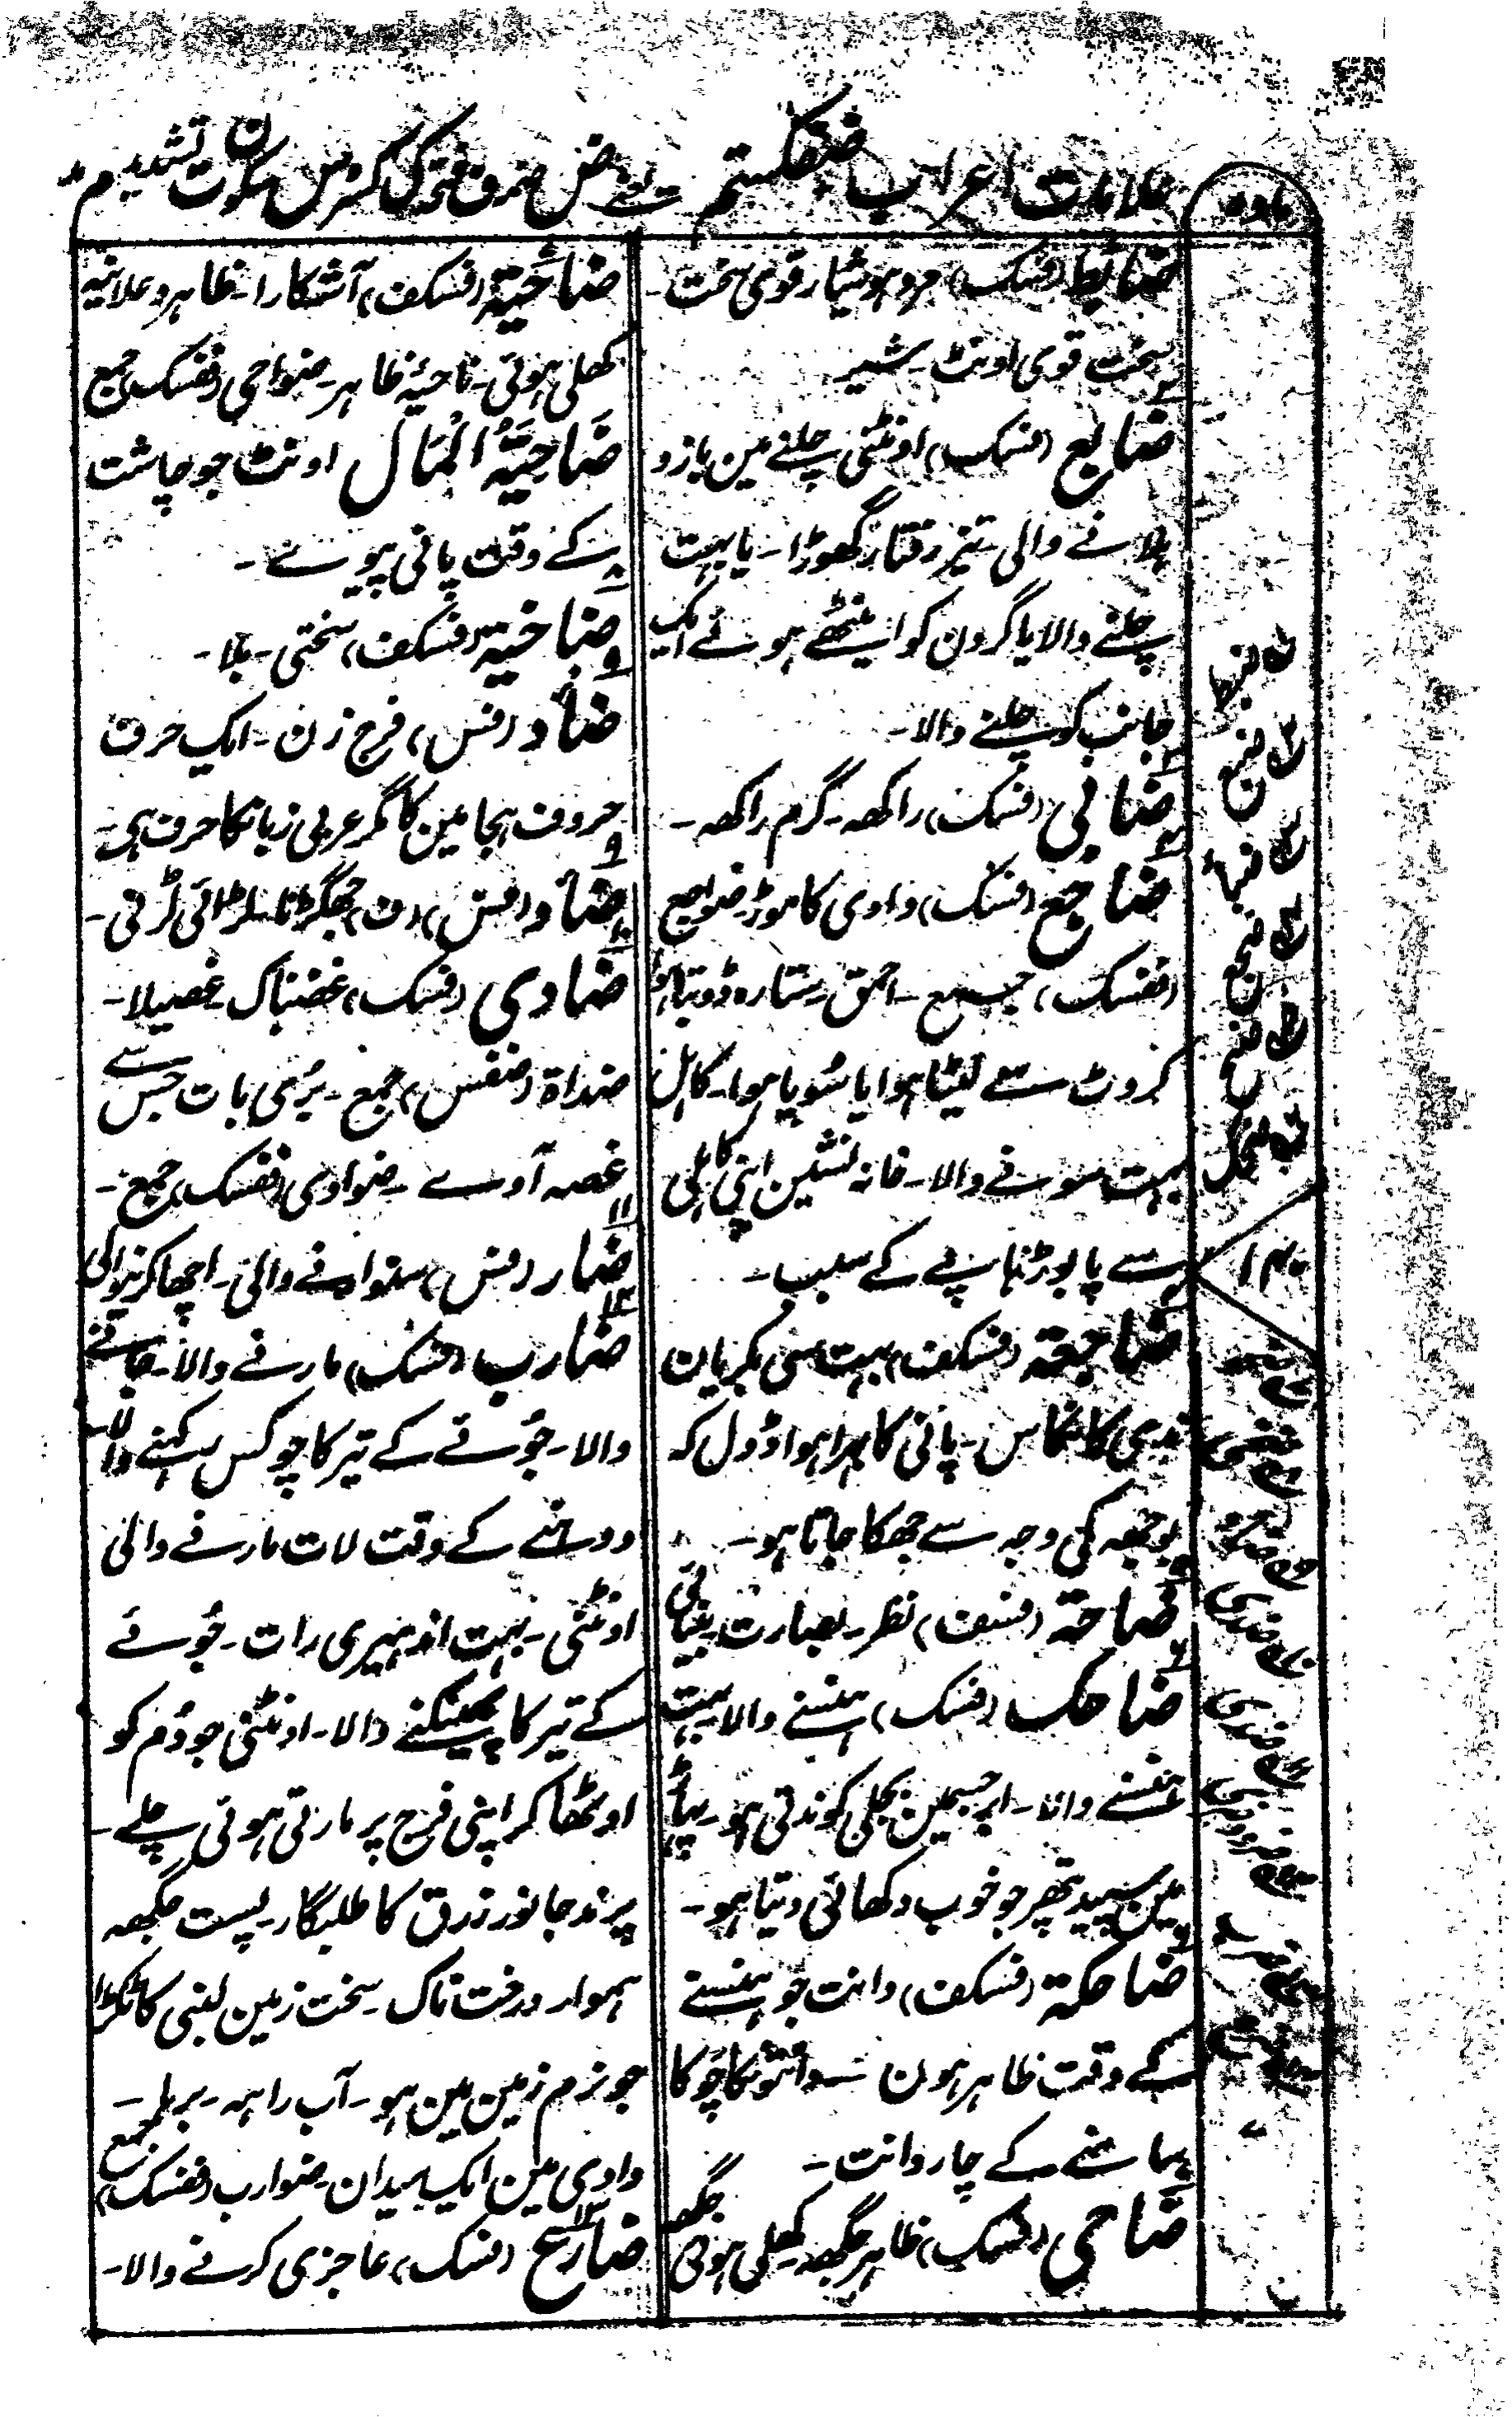 مادہ
علامات اعراب ضفکستم سے ض ضمہ ف فتحہ ک کسرہ س سکون ت تشدید م مد
ضابط (فسک) مرد ہوشیار قوی سخت۔
سخت قوی اونٹ۔ شیر
ضابع (فسک) اونٹنی چلنے مین بازو
ہلانے والی۔ تیز رفتار گھوڑا۔ یا بہت
چلنے والا یا گردن کو اینٹھے ہوئے ایک
جانب کو چلنے والا۔
ضابی (فسک) راکھہ۔ گرم راکھہ۔
ضاجع (فسک) وادی کا موڑ۔ ضواجع
(ففسک) جمع۔ احمق۔ ستارہ ڈوبتا ہوا
کروٹ سے لیٹا ہوا یا سویا ہوا۔ کاہل
بہت سونے والا۔ خانہ نشین اپنی کاہلی
سے یا بوڑہاپے کے سبب۔
ضاجعۃ (فسکف) بہت سی بکریان
ندی کا نکاس۔ پانی کا بہرا ہوا ڈول کہ
بوجھہ کی وجہ سے جھکا جاتا ہو۔
ضاحۃ (فسف) نظر۔ بصارت۔ بینائی
ضاحک (فسک) ہنسنے والا بہت
ہنسنے والا۔ ابر جسمین بجلی کوندتی ہو۔ پہاڑ
مین سپید پتھر جو خوب دکھائی دیتا ہو۔
ضاحکۃ (فسکف) دانت جو ہنستے
کے وقت ظاہر ہون۔ دانتونکا چوکا
سامنے کے چار دانت۔
ضاحی (فسک) ظاہر جگھہ۔ کھلی ہوئی جگھہ
ضاحیۃ (فسکف) آشکارا۔ ظاہر و علانیہ
کھلی ہوئی۔ ناحیۂ ظاہر۔ ضواحی (ففسک) جمع
ضَاحِیَۃُ الْمَال اونٹ جو چاشت
کے وقت پانی پیوے۔
ضاخیۃ (فسکف) سختی۔ بلا۔
ضاد (فس) فرج زن۔ ایک حرف
حروف ہجا مین کا مگر عربی زبانکا حرف ہی۔
ضاد (فس) (ف) جھگڑا نا۔ لڑائی لڑنی۔
ضادی (فسک) غضبناک غصیلا۔
ضداۃ (ضفس) جمع۔ بُری بات جس سے
غصہ آوے۔ ضوادی (ففسک) جمع۔
ضار (فس) سنوارنے والی۔ اچھا کرنیوالی
ضارب (فسک) مارنے والا۔ جانے
والا۔ جُوئے کے تیر کا چوکس رکہنے والا
دوہنے کے وقت لات مارنے والی
اونٹنی۔ بہت اندہیری رات۔ جُوئے
کے تیر کا پھینکنے والا۔ اونٹنی جو دُم کو
اوٹھا کر اپنی فرج پر مارتی ہوئی چلے۔
پرند جانور رزق کا طلبگار۔ پست جگھہ
ہموار درخت ناک۔ سخت زمین لنبی کا ٹکڑا
جو نرم زمین مین ہو۔ آب راہہ۔ بر پل۔
وادی مین ایک میدان۔ ضوارب (ففسک) جمع
ضارع (فسک) عاجزی کرنے والا۔